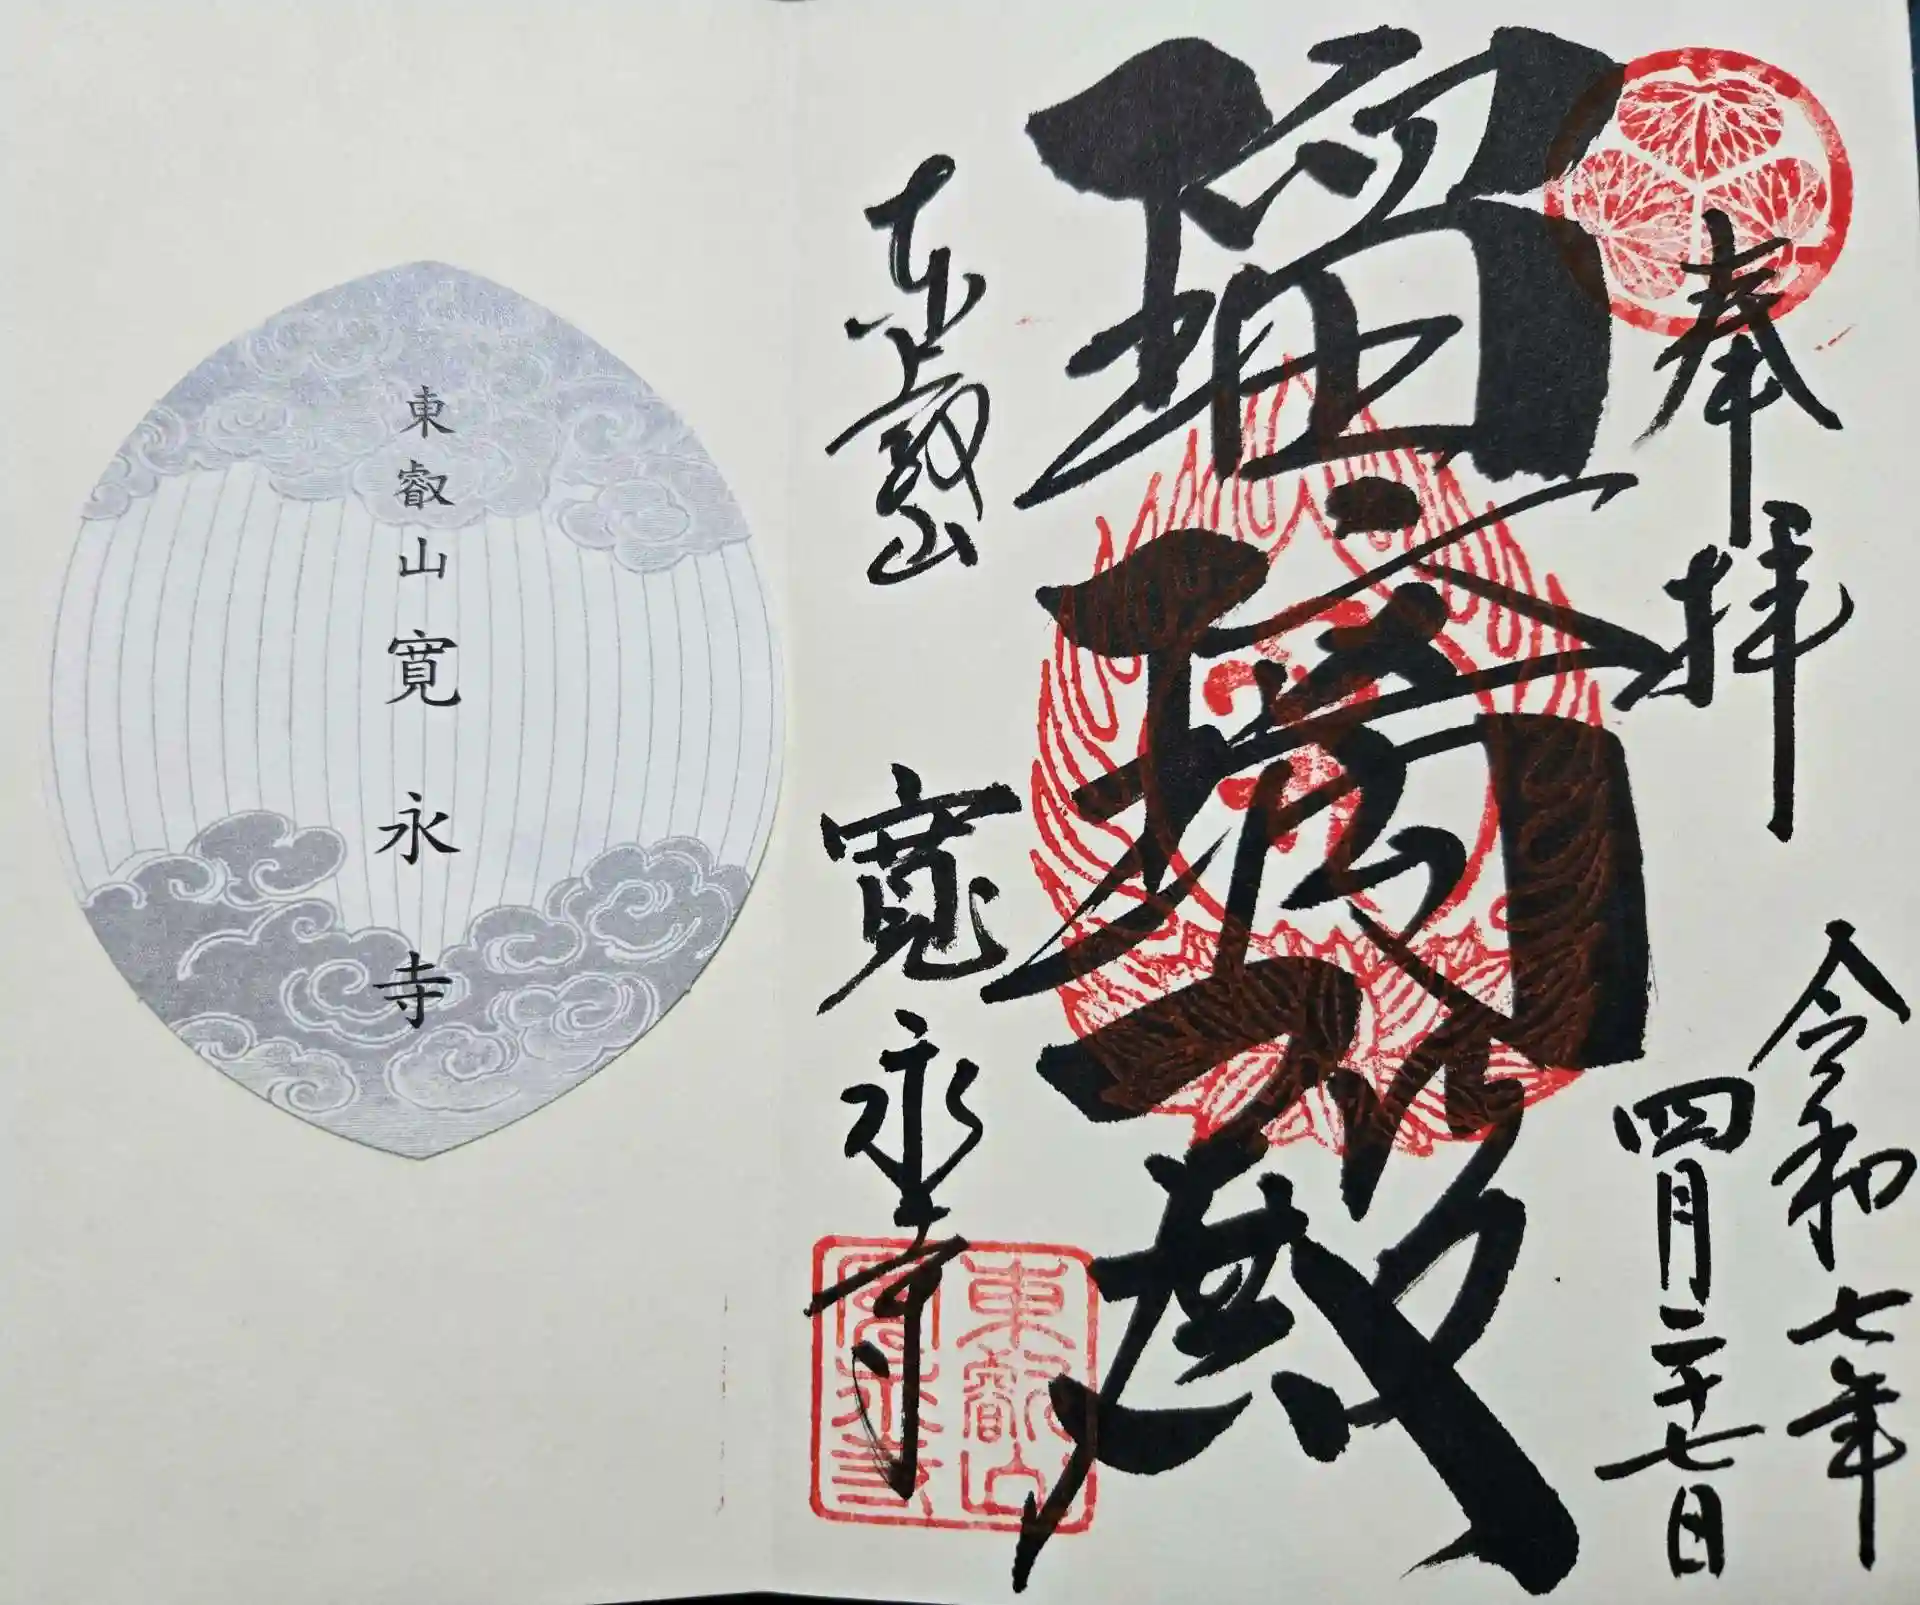 奉拝
令和七年
四月二十七日
瑠璃殿
東叡山 寛永寺
東叡山
寛永寺
東叡山寛永寺